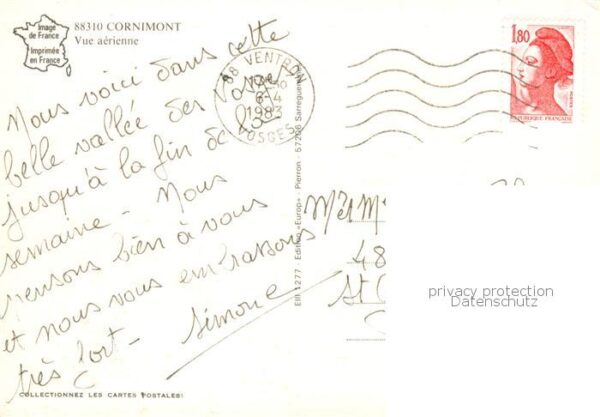 Image
de France
Imprimée
en France
88310 CORNIMONT
Vue aérienne
Nous voici dans cette
belle vallée des Vosges
jusqu'à la fin de la
semaine - Nous
pensons bien à vous
et nous vous embrassons
très fort - Simone
COLLECTIONNEZ LES CARTES POSTALES!
88 VENTRON
6-4
1983
VOSGES
Elll 1277 - Edition «Europ» - Pierron - 57206 Sarreguemines
1,80
REPUBLIQUE FRANÇAISE
48
St
privacy protection
Datenschutz